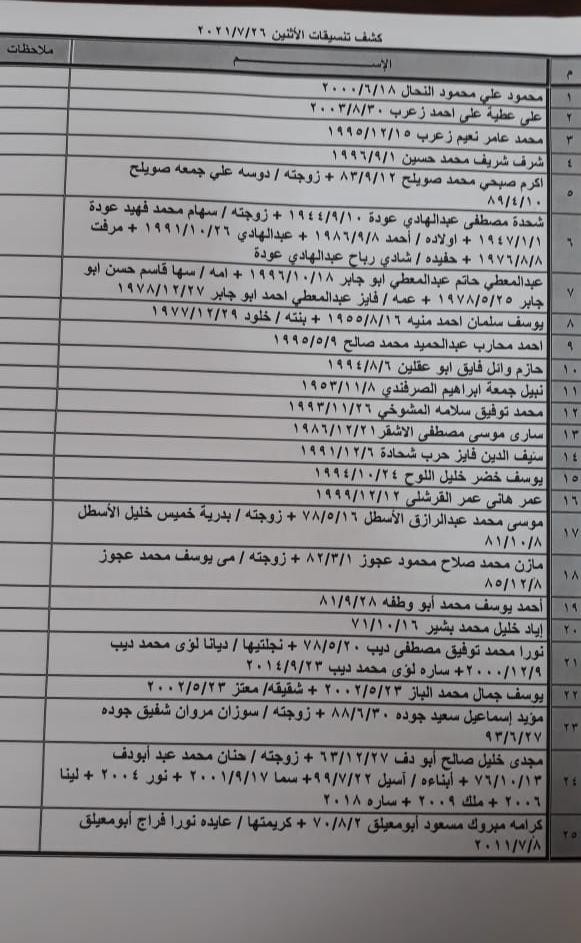 كشف تنسيقات الأثنين ٢٠٢١/٧/٢٦
م الإســـــم ملاحظات
١ محمود علي محمود النحال ٢٠٠٠/٦/١٨
٢ علي عطية علي احمد زعرب ٢٠٠٣/٨/٣٠
٣ محمد عامر نعيم زعرب ١٩٩٥/١٢/١٥
٤ شرف شريف محمد حسين ١٩٩٦/٩/١
٥ اكرم صبحي محمد صويلح ٨٣/٩/١٢ + زوجته / دوسه علي جمعه صويلح
٨٩/٤/١٠
٦ شحدة مصطفى عبدالهادي عودة ١٩٤٤/٩/١٠ + زوجته / سهام محمد فهيد عودة
١٩٤٧/١/١ + اولاده / أحمد ١٩٨٦/٩/٨ + عبدالهادي ١٩٩١/١٠/٢٦ + مرفت
١٩٧٦/٨/٨ + حفيده / شادي رباح عبدالهادي عودة
٧ عبدالمعطي حاتم عبدالمعطي ابو جابر ١٩٩٦/١٠/١٨ + امه / سها قاسم حسن ابو
جابر ١٩٧٨/٥/٢٥ + عمه / فايز عبدالمعطي احمد ابو جابر ١٩٧٨/١٢/٢٧
٨ يوسف سلمان احمد منيه ١٩٥٥/٨/١٦ + بنته / خلود ١٩٧٧/١٢/٢٩
٩ احمد محارب عبدالحميد محمد صالح ١٩٩٥/٥/٩
١٠ حازم وائل فايق ابو عقلين ١٩٩٤/٨/٦
١١ نبيل جمعة ابراهيم الصرفندي ١٩٥٣/١١/٨
١٢ محمد توفيق سلامه المشوخي ١٩٩٣/١١/٢٦
١٣ سارى موسى مصطفى الاشقر ١٩٨٦/١٢/٢١
١٤ سنيف الدين فايز حرب شحادة ١٩٩١/١٢/٦
١٥ يوسف خضر خليل اللوح ١٩٩٤/١٠/٢٤
١٦ عمر هانى عمر القرشلى ١٩٩٩/١٢/١٢
١٧ موسى محمد عبدالرازق الأسطل ٧٨/٥/١٦ + زوجته / بدرية خميس خليل الأسطل
٨١/١٠/٨
١٨ مازن محمد صلاح محمود عجوز ٨٢/٣/١ + زوجته / مى يوسف محمد عجوز
٨٥/١٢/٨
١٩ أحمد يوسف محمد أبو وطفه ٨١/٩/٢٨
٢٠ إياد خليل محمد بشير ٧١/١٠/١٦
٢١ نورا محمد توفيق مصطفى ديب ٧٨/٥/٢٠ + نجلتيها / ديانا لؤى محمد ديب
٢٠٠٠/١٢/٩+ ساره لؤى محمد ديب ٢٠١٤/٩/٢٣
٢٢ يوسف جمال محمد الباز ٢٠٠٢/٥/٢٣ + شقيقه/ معتز ٢٠٠٢/٥/٢٣
٢٣ مؤيد إسماعيل سعيد جوده ٨٨/٦/٣٠ + زوجته / سوزان مروان شفيق جوده
٩٣/٦/٢٧
٢٤ مجدى خليل صالح أبو دف ٦٣/١٢/٢٧ + زوجته / حنان محمد عبد أبودف
٧٦/١٠/١٣ + أبناءه / آسيل ٩٩/٧/٢٢+ سما ٢٠٠١/٩/١٧ + نور ٢٠٠٤ + لينا
٢٠٠٦ + ملك ٢٠٠٩ + ساره ٢٠١٨
٢٥ كرامه مبروك مسعود أبومعيلق ٧٠/٨/٢ + كريمتها / عايده نورا فراج أبومعيلق
٢٠١١/٧/٨